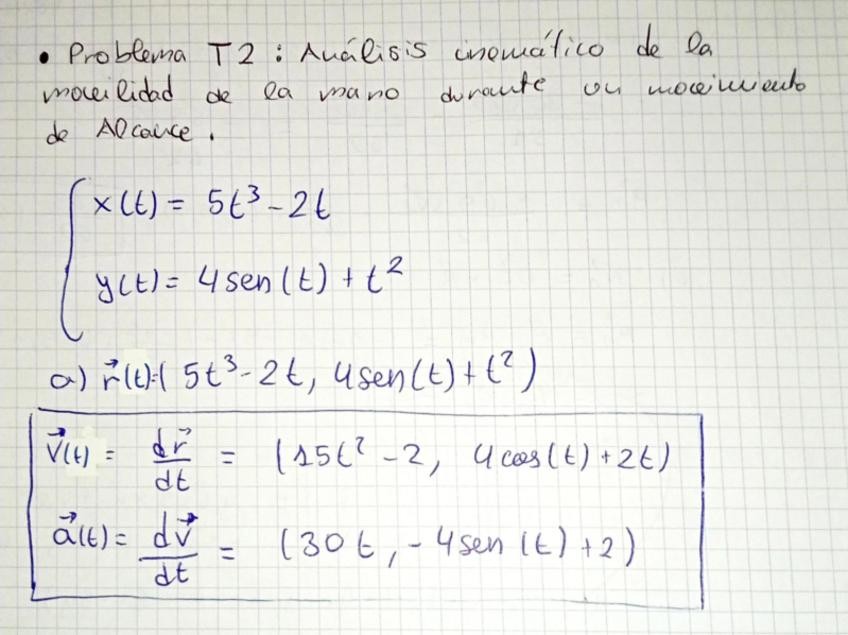 • Problema T2 : Análisis cinemático de la
movilidad de la mano durante un movimiento
de Alcance .
x(t) = 5t³ - 2t
y(t) = 4 sen(t) + t²
a) r⃗(t)=( 5t³ - 2t, 4sen(t) + t² )
v⃗(t) = dr⃗/dt = (15t² - 2, 4 cos(t) + 2t)
a⃗(t) = dv⃗/dt = (30t, -4sen(t) + 2)